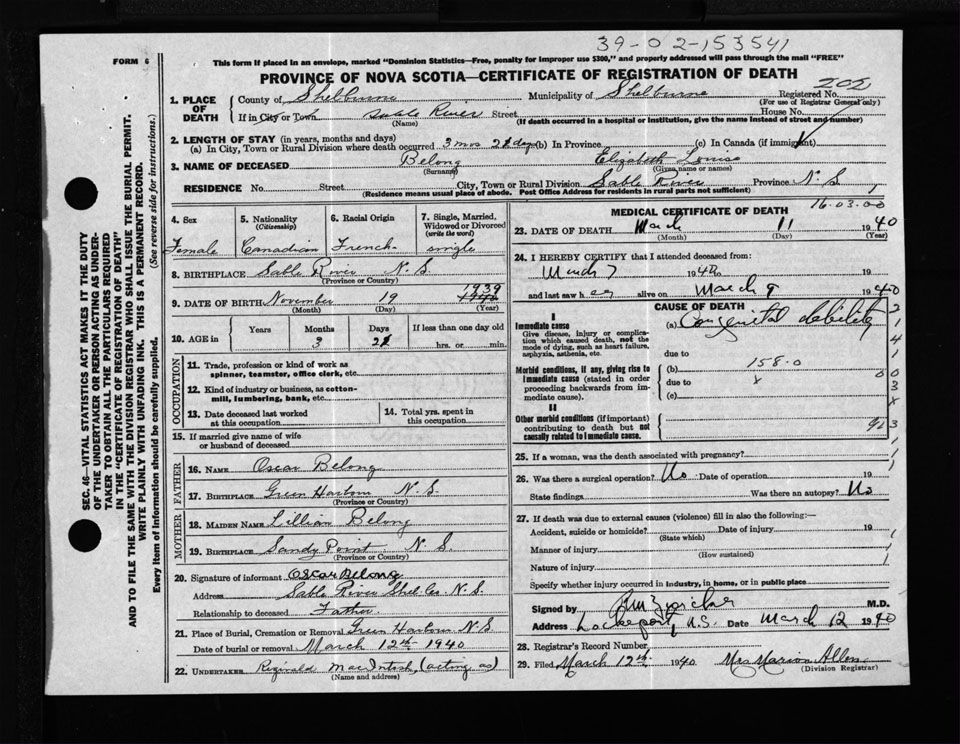 39-02-153541
FORM 6
This form if placed in an envelope, marked "Dominion Statistics—Free, penalty for improper use $300," and properly addressed will pass through the mail "FREE"
PROVINCE OF NOVA SCOTIA—CERTIFICATE OF REGISTRATION OF DEATH
202
1. PLACE OF DEATH
County of Shelburne Municipality of Shelburne Registered No.
(For use of Registrar General only)
If in City or Town Sable River Street House No.
(Name) (If death occurred in a hospital or institution, give the name instead of street and number)
2. LENGTH OF STAY (in years, months and days)
(a) In City, Town or Rural Division where death occurred 3 mos 21 days (b) In Province (c) In Canada (if immigrant)
3. NAME OF DECEASED Belong Elizabeth Louise
(Surname) (Given name or names)
RESIDENCE No. Street City, Town or Rural Division Sable River Province N.S.
(Residence means usual place of abode. Post Office Address for residents in rural parts not sufficient)
SEC. 46—VITAL STATISTICS ACT MAKES IT THE DUTY
OF THE UNDERTAKER OR PERSON ACTING AS UNDER-
TAKER TO OBTAIN ALL THE PARTICULARS REQUIRED
IN THE "CERTIFICATE OF REGISTRATION OF DEATH"
AND TO FILE THE SAME WITH THE DIVISION REGISTRAR WHO SHALL ISSUE THE BURIAL PERMIT.
WRITE PLAINLY WITH UNFADING INK. THIS IS A PERMANENT RECORD.
Every item of Information should be carefully supplied. (See reverse side for instructions.)
4. Sex 5. Nationality (Citizenship) 6. Racial Origin 7. Single, Married, Widowed or Divorced (write the word)
Female Canadian French single
8. BIRTHPLACE Sable River N.S.
(Province or Country)
1939
9. DATE OF BIRTH November 19 1940
(Month) (Day) (Year)
10. AGE in Years Months Days If less than one day old
3 21 hrs. or min.
OCCUPATION
11. Trade, profession or kind of work as
spinner, teamster, office clerk, etc.
12. Kind of industry or business, as cotton-
mill, lumbering, bank, etc.
13. Date deceased last worked
at this occupation
14. Total yrs. spent in
this occupation
15. If married give name of wife
or husband of deceased
FATHER
16. NAME Oscar Belong
17. BIRTHPLACE Green Harbour N.S.
(Province or Country)
MOTHER
18. MAIDEN NAME Lillian Belong
19. BIRTHPLACE Sandy Point N.S.
(Province or Country)
20. Signature of informant Oscar Belong
Address Sable River Shel. Co. N.S.
Relationship to deceased Father
21. Place of Burial, Cremation or Removal Green Harbour N.S
Date of burial or removal March 12th 1940
22. UNDERTAKER Reginald MacIntosh (acting as)
(Name and address)
16-03-00
MEDICAL CERTIFICATE OF DEATH
23. DATE OF DEATH March 11 1940
(Month) (Day) (Year)
24. I HEREBY CERTIFY that I attended deceased from:
March 7 1940
and last saw her alive on March 9 1940
CAUSE OF DEATH
I
Immediate cause
Give disease, injury or complication which caused death, not the mode of dying, such as heart failure, asphyxia, asthenia, etc.
(a) Congenital debility
due to
Morbid conditions, if any, giving rise to immediate cause (stated in order proceeding backwards from immediate cause).
(b) 158.0
due to
(c)
II
Other morbid conditions (if important) contributing to death but not causally related to immediate cause.
25. If a woman, was the death associated with pregnancy?
26. Was there a surgical operation? No Date of operation 19
State findings Was there an autopsy? No
27. If death was due to external causes (violence) fill in also the following:—
Accident, suicide or homicide? Date of injury 19
(State which)
Manner of injury
(How sustained)
Nature of injury
Specify whether injury occurred in industry, in home, or in public place
Signed by M.D.
Address Lockeport, N.S. Date March 12 1940
28. Registrar's Record Number
29. Filed March 12th 1940 Mrs Marion Allen
(Division Registrar)